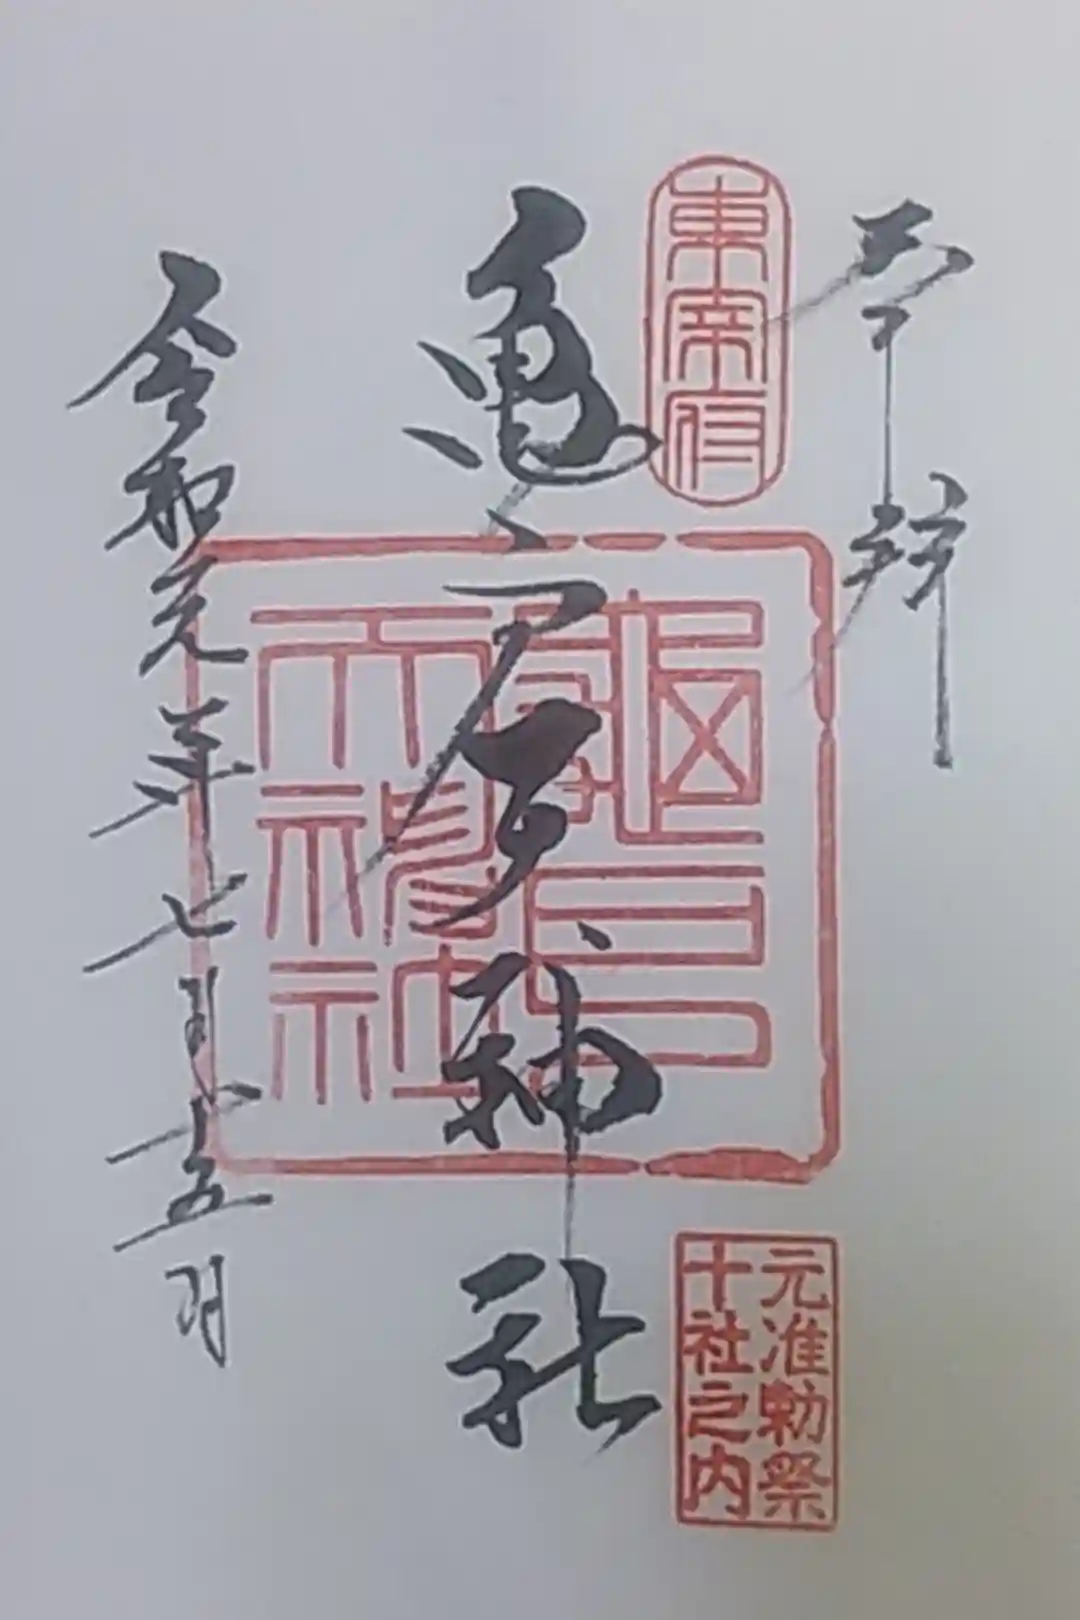 奉拝
東宰府
亀戸神社
龜戸
天神社
元准勅祭
十社之内
令和元年七月十五日